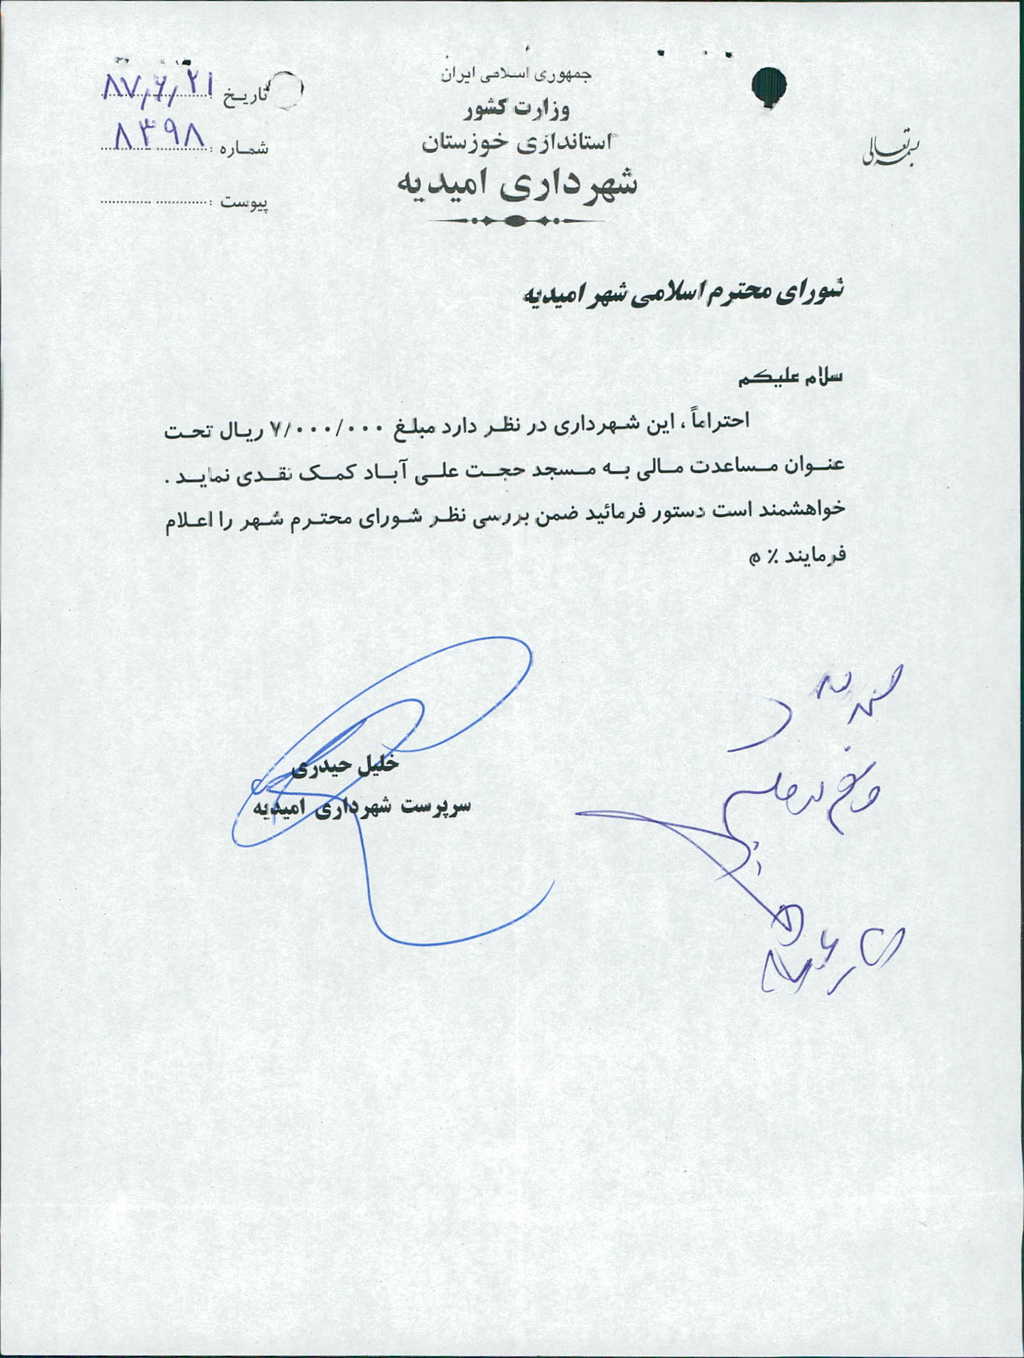 بسمه تعالی
جمهوری اسلامی ایران
وزارت کشور
استانداری خوزستان
شهرداری امیدیه
تاریخ : ۸۷/۶/۲۱
شماره : ۸۳۹۸
پیوست :
شورای محترم اسلامی شهر امیدیه
سلام علیکم
احتراماً ، این شهرداری در نظر دارد مبلغ ۷/۰۰۰/۰۰۰ ریال تحت
عنوان مساعدت مالی به مسجد حجت علی آباد کمک نقدی نماید .
خواهشمند است دستور فرمائید ضمن بررسی نظر شورای محترم شهر را اعلام
فرمایند ٪ م
خلیل حیدری
سرپرست شهرداری امیدیه